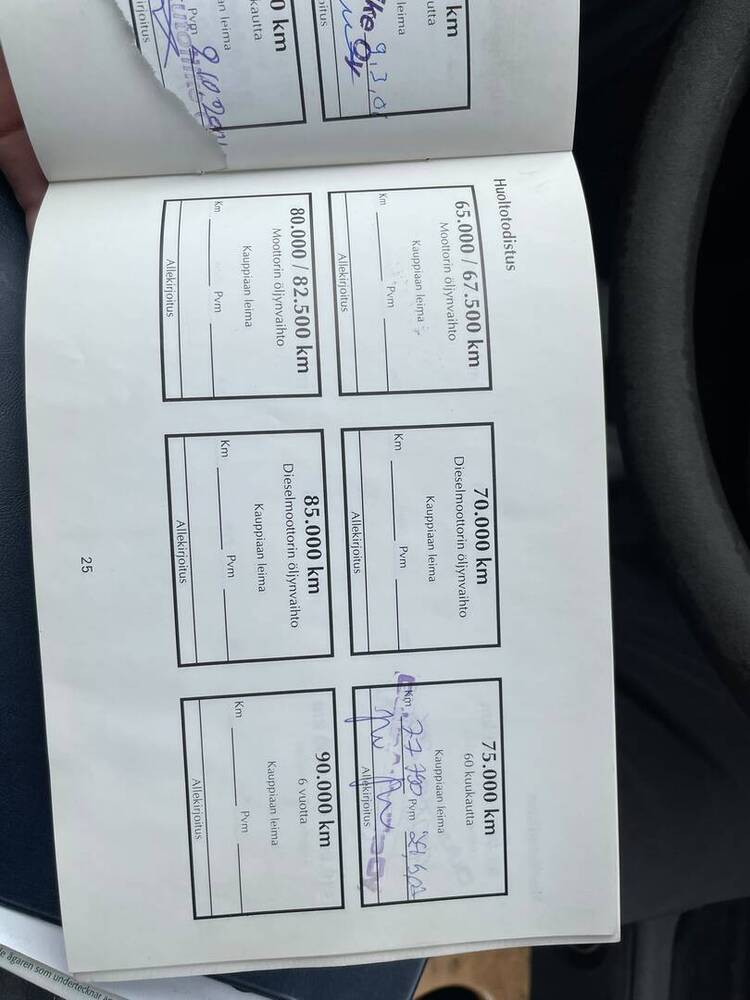 0 km
kautta
an leima
Pvm 9.10.200
irjoitus
km
utta
leima
9,3,0
oitus
Huoltotodistus
65.000 / 67.500 km
Moottorin öljynvaihto
Kauppiaan leima
Km Pvm
Allekirjoitus
70.000 km
Dieselmoottorin öljynvaihto
Kauppiaan leima
Km Pvm
Allekirjoitus
75.000 km
60 kuukautta
Kauppiaan leima
Km 77 700 Pvm
Allekirjoitus
80.000 / 82.500 km
Moottorin öljynvaihto
Kauppiaan leima
Km Pvm
Allekirjoitus
85.000 km
Dieselmoottorin öljynvaihto
Kauppiaan leima
Km Pvm
Allekirjoitus
90.000 km
6 vuotta
Kauppiaan leima
Km Pvm
Allekirjoitus
25
ägaren som undertecknar